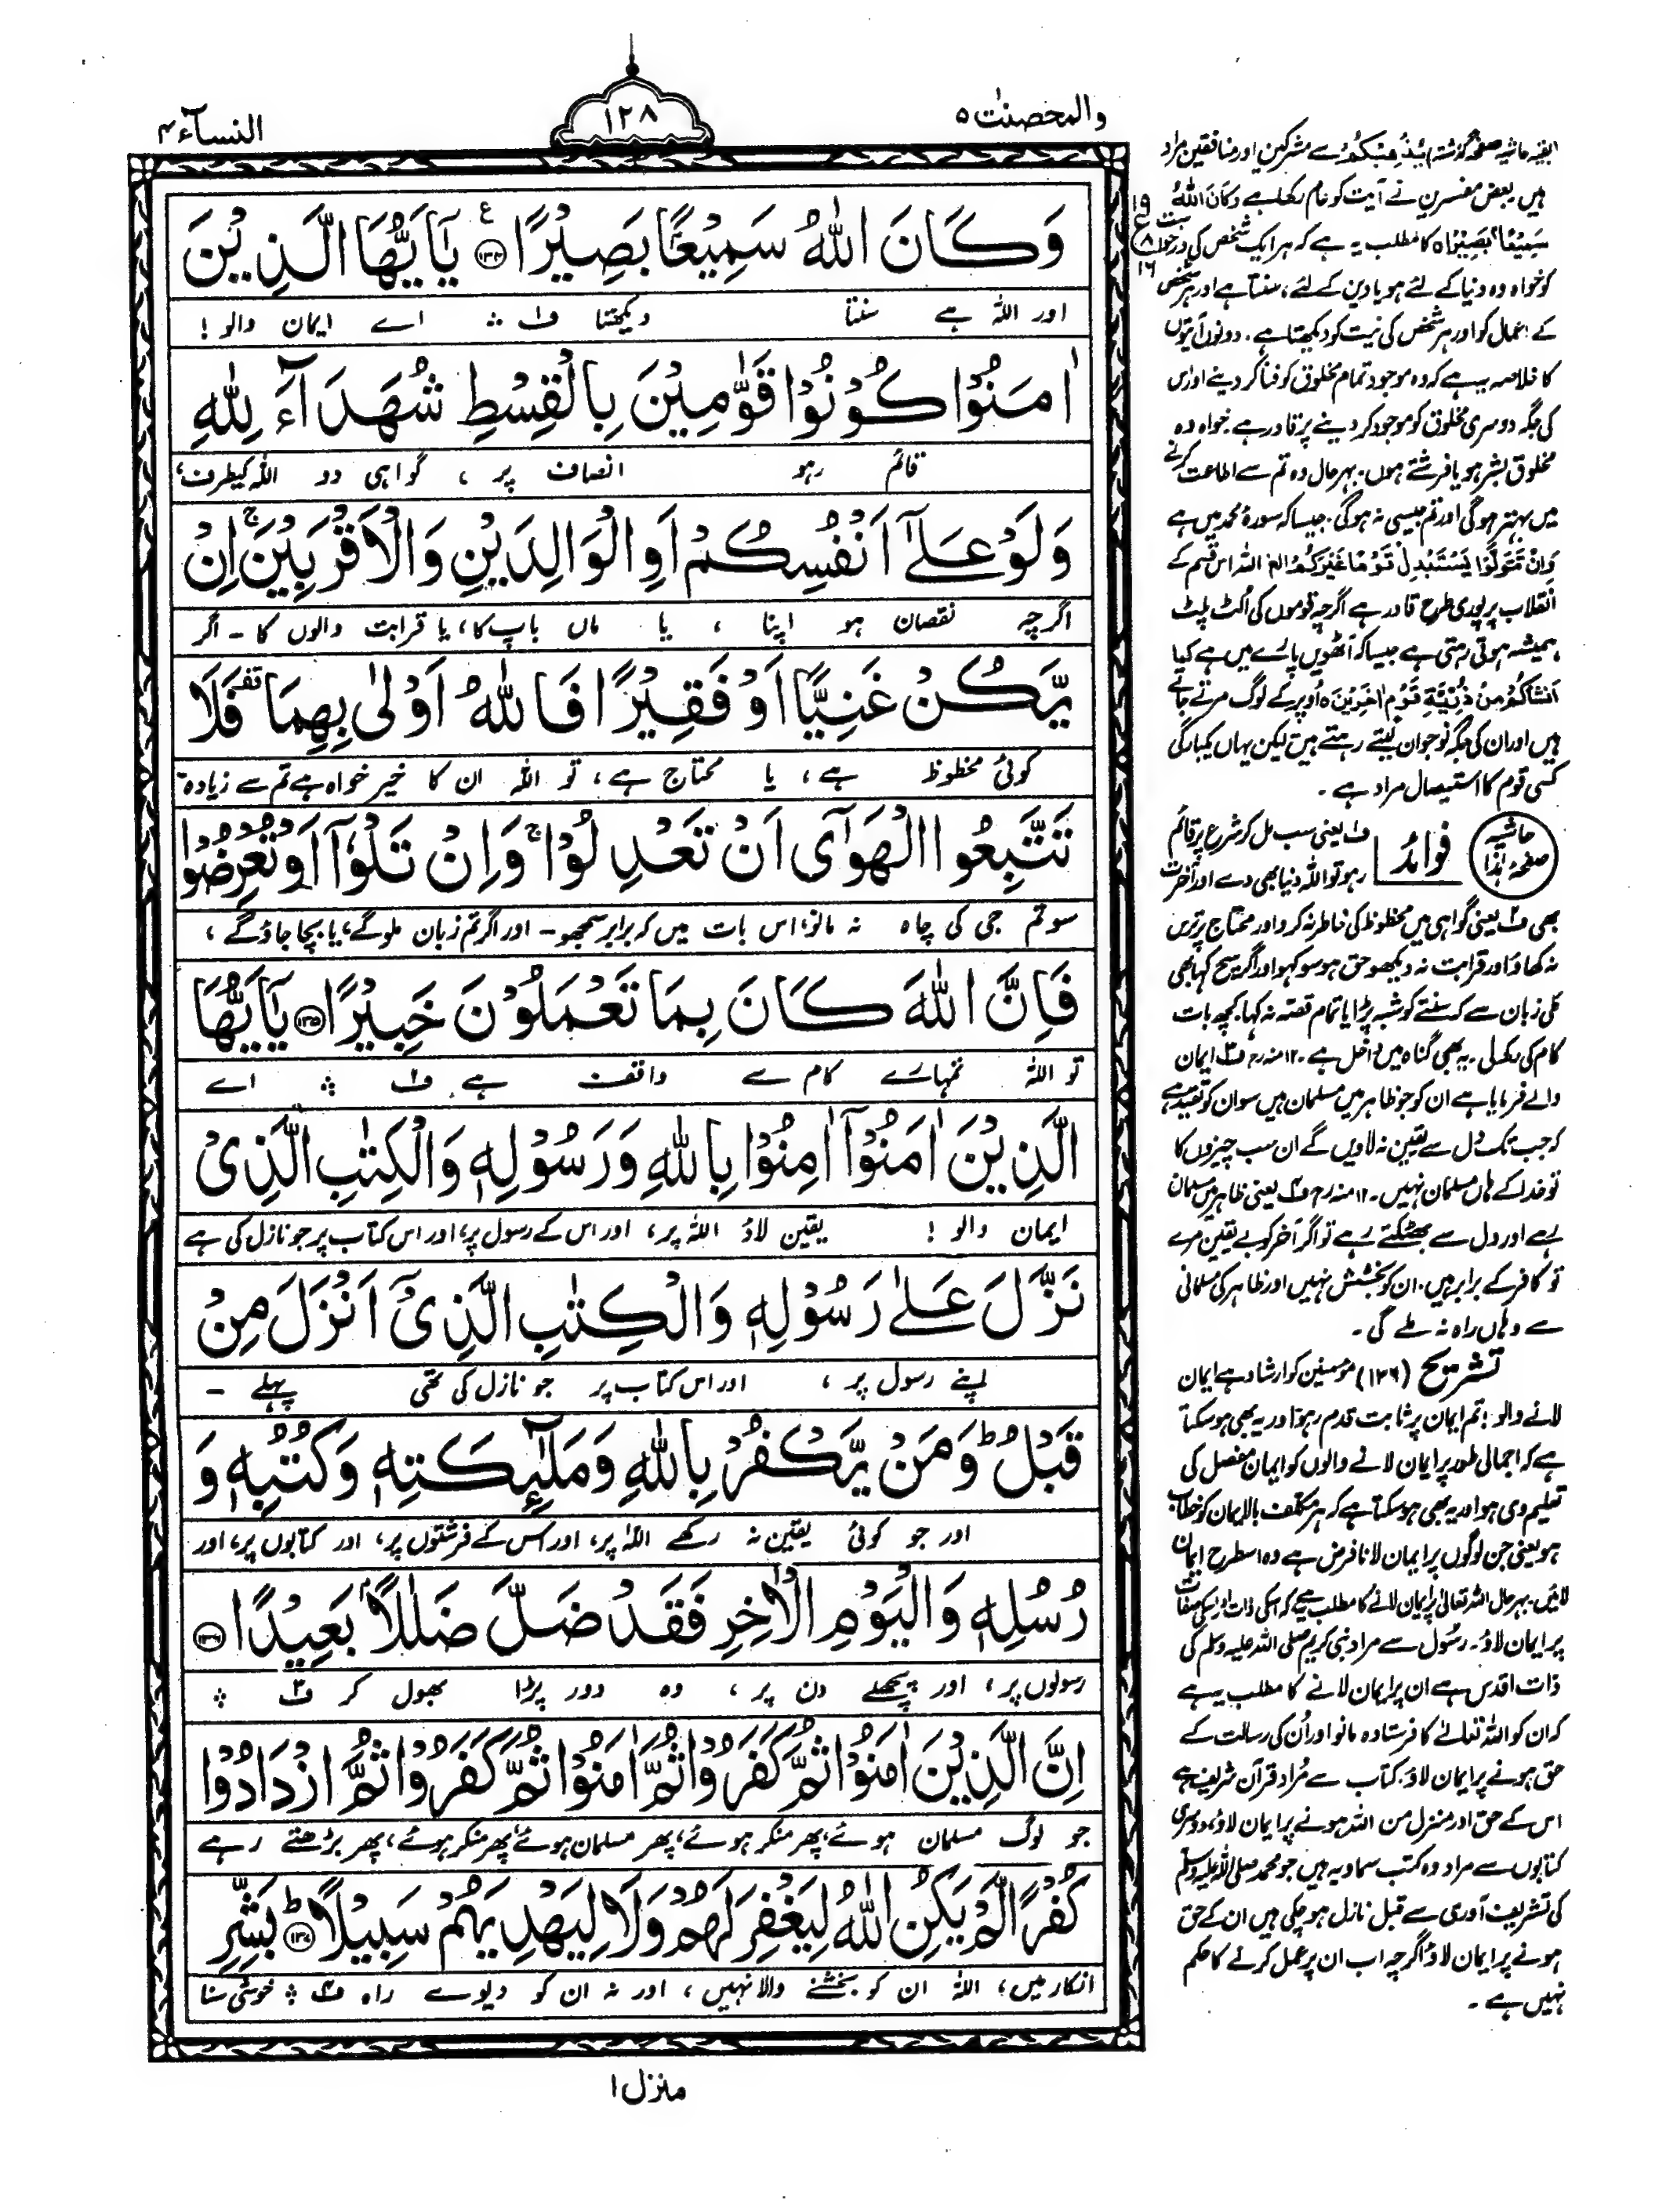 والمحصنٰت ۵
۱۲۸
النسآء ۴
وَكَانَ اللّٰهُ سَمِيْعًۢا بَصِيْرًا ۝۱۳۴ يٰۤاَيُّهَا الَّذِيْنَ
اور اللہ ہے سنتا دیکھتا ف۱ ؞ اے ایمان والو!
اٰمَنُوْا كُوْنُوْا قَوّٰمِيْنَ بِالْقِسْطِ شُهَدَآءَ لِلّٰهِ
قائم رہو انصاف پر، گواہی دو اللہ کیطرف،
وَلَوْ عَلٰۤى اَنْفُسِكُمْ اَوِ الْوَالِدَيْنِ وَالْاَقْرَبِيْنَ ۚ اِنْ
اگرچہ نقصان ہو اپنا، یا ماں باپ کا، یا قرابت والوں کا - اگر
يَّكُنْ غَنِيًّا اَوْ فَقِيْرًا فَاللّٰهُ اَوْلٰى بِهِمَا ۫ فَلَا
کوئی محظوظ ہے، یا محتاج ہے، تو اللہ ان کا خیر خواہ ہے تم سے زیادہ -
تَتَّبِعُوا الْهَوٰۤى اَنْ تَعْدِلُوْا ۚ وَاِنْ تَلْوٗۤا اَوْ تُعْرِضُوْا
سو تم جی کی چاہ نہ مانو، اس بات میں کہ برابر سمجھو - اور اگر تم زبان ملو گے، یا بچا جاؤ گے،
فَاِنَّ اللّٰهَ كَانَ بِمَا تَعْمَلُوْنَ خَبِيْرًا ۝۱۳۵ يٰۤاَيُّهَا
تو اللہ تمہارے کام سے واقف ہے ف۲ ؞ اے
الَّذِيْنَ اٰمَنُوْۤا اٰمِنُوْا بِاللّٰهِ وَرَسُوْلِهٖ وَالْكِتٰبِ الَّذِيْ
ایمان والو! یقین لاؤ اللہ پر، اور اس کے رسول پر، اور اس کتاب پر جو نازل کی ہے
نَزَّلَ عَلٰى رَسُوْلِهٖ وَالْكِتٰبِ الَّذِيْۤ اَنْزَلَ مِنْ
اپنے رسول پر، اور اس کتاب پر جو نازل کی تھی پہلے -
قَبْلُ ؕ وَمَنْ يَّكْفُرْ بِاللّٰهِ وَمَلٰٓئِكَتِهٖ وَكُتُبِهٖ وَ
اور جو کوئی یقین نہ رکھے اللہ پر، اور اس کے فرشتوں پر، اور کتابوں پر، اور
رُسُلِهٖ وَالْيَوْمِ الْاٰخِرِ فَقَدْ ضَلَّ ضَلٰلًۢا بَعِيْدًا ۝۱۳۶
رسولوں پر، اور پچھلے دن پر، وہ دور پڑا بھول کر ف۳ ؞
اِنَّ الَّذِيْنَ اٰمَنُوْا ثُمَّ كَفَرُوْا ثُمَّ اٰمَنُوْا ثُمَّ كَفَرُوْا ثُمَّ ازْدَادُوْا
جو لوگ مسلمان ہوئے، پھر منکر ہوئے، پھر مسلمان ہوئے، پھر منکر ہوئے، پھر بڑھتے رہے
كُفْرًا لَّمْ يَكُنِ اللّٰهُ لِيَغْفِرَ لَهُمْ وَلَا لِيَهْدِيَهُمْ سَبِيْلًا ؕ ۝۱۳۷ بَشِّرِ
انکار میں، اللہ ان کو بخشنے والا نہیں، اور نہ ان کو دیوے راہ ف۴ ؞ خوشی سنا
منزل ۱
۱۹
ع
۸
۱۶
بقیہ حاشیہ صفحہ گذشتہ) يُذْهِبْكُمْ سے مشرکین اور منافقین مراد
ہیں بعض مفسرین نے آیت کو عام رکھا ہے وَكَانَ اللّٰهُ
سَمِيْعًۢا بَصِيْرًا ۝ کا مطلب یہ ہے کہ ہر ایک شخص کی درخواست
کو خواہ وہ دنیا کے لئے ہو یا دین کے لئے، سنتا ہے اور ہر شخص
کے اعمال کو اور ہر شخص کی نیت کو دیکھتا ہے. دونوں آیتوں
کا خلاصہ یہ ہے کہ وہ موجود تمام مخلوق کو فنا کر دینے اور اس
کی جگہ دوسری مخلوق کو موجود کر دینے پر قادر ہے خواہ وہ
مخلوق بشر ہو یا فرشتے ہوں. بہر حال وہ تم سے اطاعت کرنے
میں بہتر ہوگی اور تم جیسی نہ ہوگی. جیسا کہ سورۂ محمد میں ہے
وَاِنْ تَتَوَلَّوْا يَسْتَبْدِلْ قَوْمًا غَيْرَكُمْ الخ اللہ اس قسم کے
انقلاب پر پوری طرح قادر ہے اگرچہ قوموں کی اُلٹ پلٹ
ہمیشہ ہوتی رہتی ہے جیسا کہ آٹھویں پارے میں ہے كَمَا
اَنْشَاَكُمْ مِنْ ذُرِّيَّةِ قَوْمٍ اٰخَرِيْنَ ۝ اوپر کے لوگ مرتے جاتے
ہیں اور ان کی جگہ نوجوان لیتے رہتے ہیں لیکن یہاں یکبارگی
کسی قوم کا استیصال مراد ہے .
حاشیہ صفحہ ہٰذا
فوائد
ف۱ یعنی سب مل کر شرع پر قائم
رہو تو اللہ دنیا بھی دے اور آخرت
بھی ف۲ یعنی گواہی میں محظوظ کی خاطر نہ کرو اور محتاج پر ترس
نہ کھاؤ اور قرابت نہ دیکھو حق ہو سو کہو اور اگر سچ کہا بھی
ملی زبان سے کہ سننے کو شبہ پڑا یا تمام قصہ نہ کہا کچھ بات
کام کی رکھ لی. یہ بھی گناہ میں داخل ہے. ۱۲ منہ رح ف۳ ایمان
والے فرمایا ہے ان کو جو ظاہر میں مسلمان ہیں سو ان کو تقید ہے
کہ جب تک دل سے یقین نہ لاویں گے ان سب چیزوں کا
تو خدا کے ہاں مسلمان نہیں. ۱۲ منہ رح ف۴ یعنی ظاہر میں مسلمان
رہے اور دل سے بھٹکتے رہے تو اگر آخر کو بے یقین مرے
تو کافر کے برابر ہیں. ان کو بخشش نہیں اور ظاہر کی مسلمانی
سے وہاں راہ نہ ملے گی.
تشریح (۱۳۶) مؤمنین کو ارشاد ہے ایمان
لانے والو! تم ایمان پر ثابت قدم رہو اور یہ بھی ہو سکتا
ہے کہ اجمالی طور پر ایمان لانے والوں کو ایمان مفصل کی
تعلیم دی ہو اور یہ بھی ہو سکتا ہے کہ ہر مکلف بالایمان کو خطاب
ہو یعنی جن لوگوں پر ایمان لانا فرض ہے وہ اسطرح ایمان
لائیں. بہر حال اللہ تعالیٰ پر ایمان لانے کا مطلب یہ ہے کہ اسکی ذات اور اسکی صفات
پر ایمان لاؤ. رسول سے مراد نبی کریم صلی اللہ علیہ وسلم کی
ذات اقدس ہے ان پر ایمان لانے کا مطلب یہ ہے
کہ ان کو اللہ تعالےٰ کا فرستادہ مانو اور اُن کی رسالت کے
حق ہونے پر ایمان لاؤ. کتاب سے مُراد قرآن شریف ہے
اس کے حق اور منزل من اللہ ہونے پر ایمان لاؤ، دوسری
کتابوں سے مراد وہ کتب سماویہ ہیں جو محمد صلی اللہ علیہ وسلم
کی تشریف آوری سے قبل نازل ہو چکی ہیں ان کے حق
ہونے پر ایمان لاؤ اگرچہ اب ان پر عمل کرنے کا حکم
نہیں ہے .